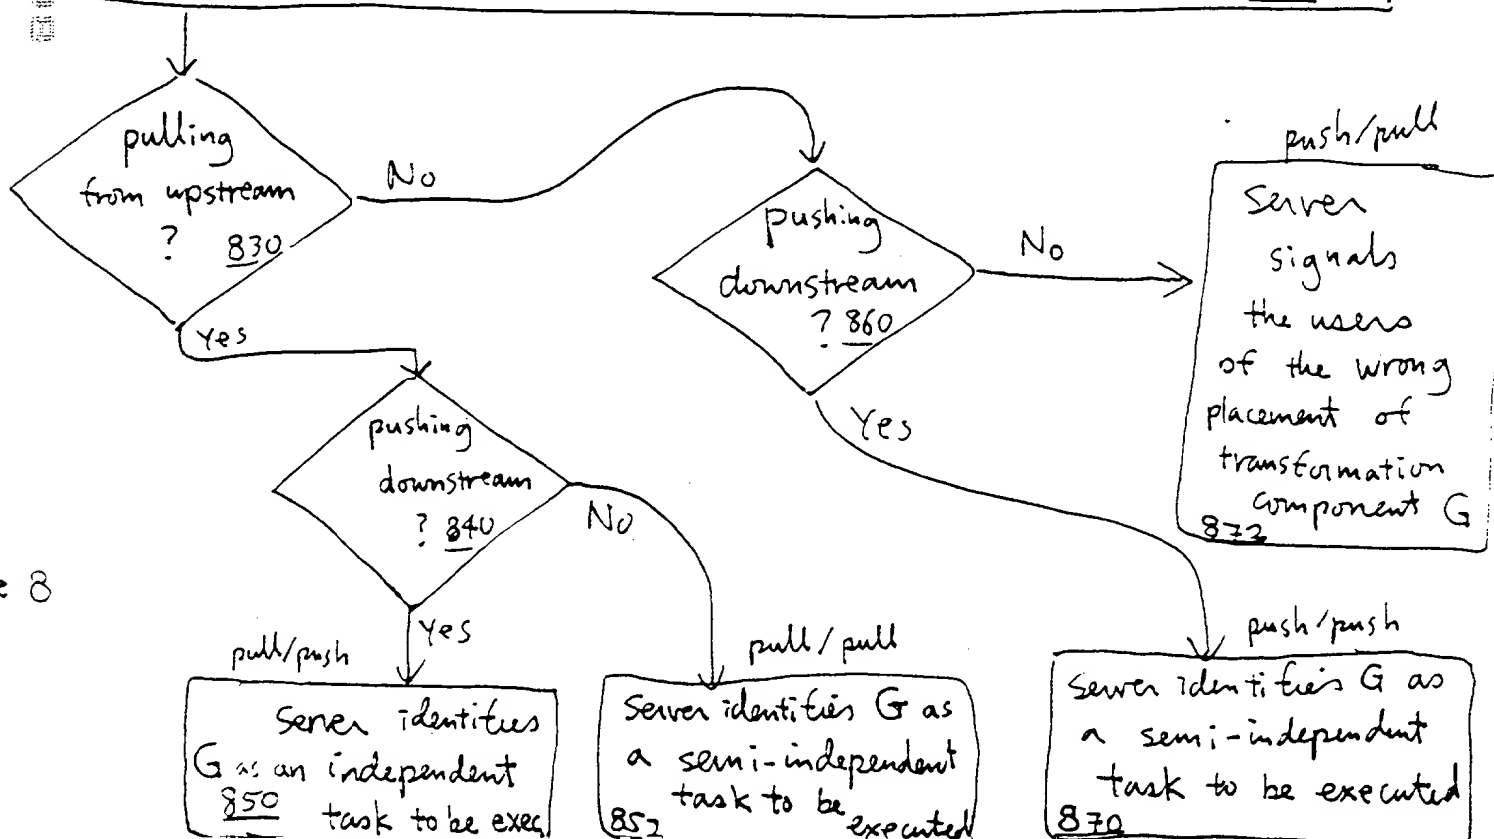 pulling
from upstream
? 830
No
pushing
downstream
? 860
No
push/pull
Server
signals
the users
of the wrong
placement of
transformation
component G
872
Yes
pushing
downstream
? 840
No
Yes
8
Yes
pull/push
Server identifies
G as an independent
850
task to be exec
pull/pull
Server identifies G as
a semi-independent
task to be
852 executed
push/push
Server identifies G as
a semi-independent
task to be executed
870